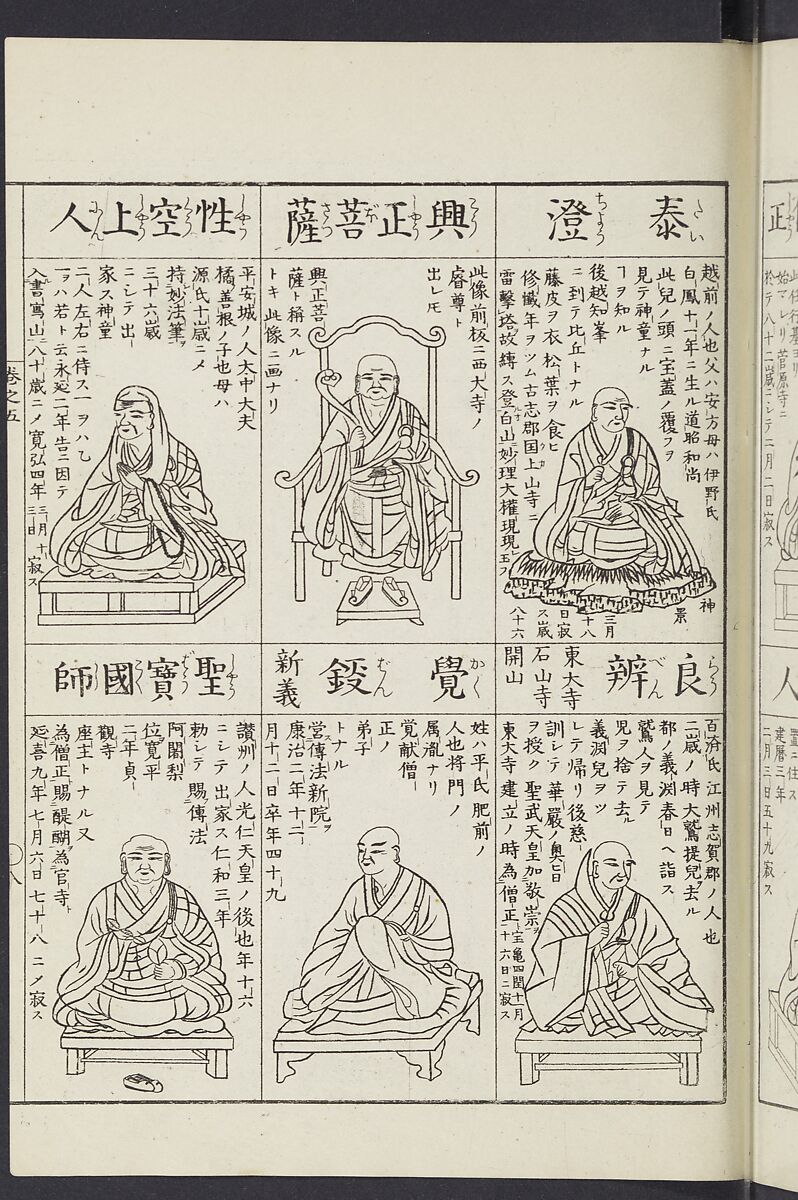 泰澄
たいちよう
越前ノ人也父ハ安方母ハ伊野氏
白鳳十一年ニ生ル道昭和尚
此児ノ頭ニ宝蓋ノ覆フヲ
見テ神童ナル
ヿヲ知ル
後越知峯
ニ到テ比丘トナル
藤皮ヲ衣松葉ヲ食ヒ
修懺年ヲツム古志郡国上山寺ニ
雷撃塔故縛ス登白山妙理大権現現玉フ
神
景
三月
十八
日寂
ス歳
八十六
興正菩薩
こうしやうぼさつ
此像前板ニ西大寺ノ
睿尊ト
出レ𪜈
興正菩
薩ト稱スル
トキ此像ニ画ナリ
性空上人
しやうくうしやうにん
平安城ノ人太中大夫
橘善根ノ子也母ハ
源氏十歳ニメ
持妙法筆ヲ
三十六歳
ニシテ出
家ス神童
二人左右ニ侍ス一ヲハ乙
一ヲハ若ト云永延二年告ニ因テ
入書寫山八十歳ニメ寛弘四年
三月十
三日
寂ス
良辨
らうべん
東大寺
石山寺
開山
百済氏江州志賀郡ノ人也
二歳ノ時大鷲提兒去ル
都ノ義淵春日ヘ詣ス
鷲人ヲ見テ
児ヲ捨テ去ル
義淵兒ヲツ
レテ帰リ後慈
訓シテ華嚴ノ奥旨
ヲ授ク聖武天皇加敬崇ヲ
東大寺建立ノ時為僧正
宝亀四閏十月
十六日ニ寂ス
覺鋑
かくばん
新義
姓ハ平氏肥前ノ
人也將門ノ
属胤ナリ
覚献僧
正ノ
弟子
トナル
営傳法新院ヲ
康治二年十二
月十二日卒年四十九
聖寶國師
しやうほうこくし
讃州ノ人光仁天皇ノ後也年十六
ニシテ出家ス仁和三年
勅シテ賜傳法
阿闍梨
位寛平
二年貞
觀寺
座主トナル又
為僧正賜醍醐為官寺
延喜九年七月六日七十八ニメ寂ス
巻之五
八